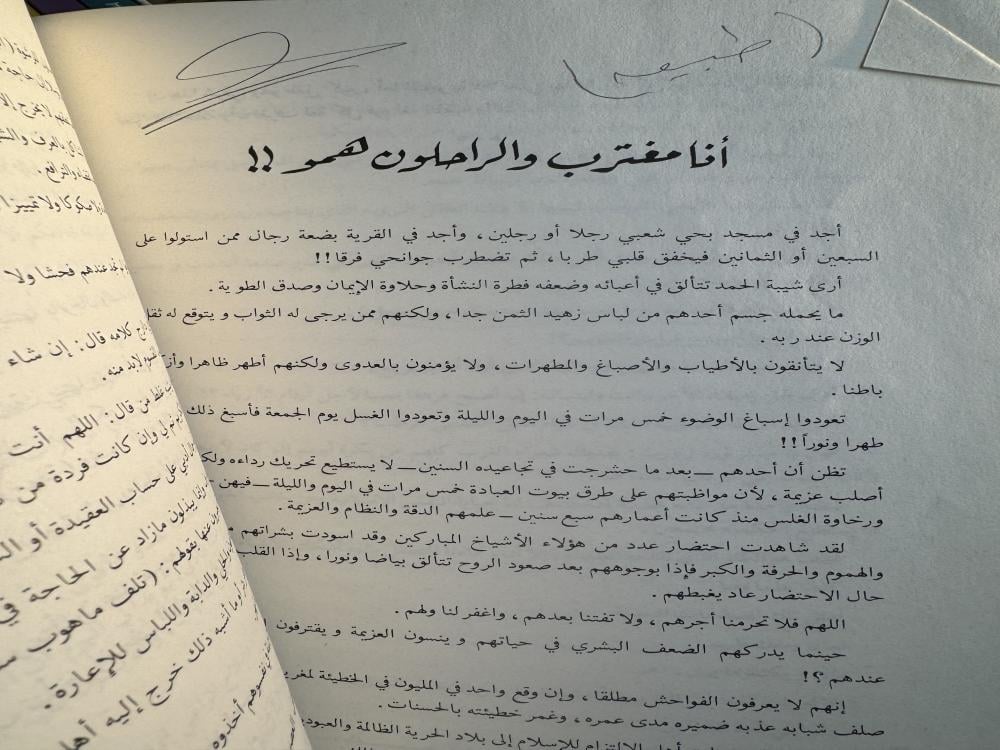 أنا مغترب والراحلون همو !!
أجد في مسجد بحي شعبي رجلا أو رجلين ، وأجد في القرية بضعة رجال ممن استولوا على
السبعين أو الثمانين فيخفق قلبي طربا ، ثم تضطرب جوانحي فرقا !!
أرى شيبة الحمد تتألق في أعبائه وضعفه فطرة النشأة وحلاوة الإيمان وصدق الطوية .
ما يحمله جسم أحدهم من لباس زهيد الثمن جدا ، ولكنهم ممن يرجى له الثواب و يتوقع له ثقل
الوزن عند ربه .
لا يتأنقون بالأطياب والأصباغ والمطهرات ، ولا يؤمنون بالعدوى ولكنهم أطهر ظاهرا
باطنا .
تعودوا إسباغ الوضوء خمس مرات في اليوم والليلة وتعودوا الغسل يوم الجمعة فأسبغ ذلك
طهرا ونوراً !!
تظن أن أحدهم ــ بعد ما حشرجت في تجاعيده السنين ــ لا يستطيع تحريك رداءه
أصلب عزيمة ، لأن مواظبتهم على طرق بيوت العبادة خمس مرات في اليوم والليلة ــ فيهن
ورخاوة الغلس منذ كانت أعمارهم سبع سنين ــ علمهم الدقة والنظام والعزيمة .
لقد شاهدت احتضار عدد من هؤلاء الأشياخ المباركين وقد اسودت بشراتهم
والهموم والحرفة والكبر فإذا بوجوههم بعد صعود الروح تتألق بياضا ونورا ، وإذا القلب
حال الاحتضار عاد يغبطهم .
اللهم فلا تحرمنا أجرهم ، ولا تفتنا بعدهم ، واغفر لنا ولهم .
حينما يدركهم الضعف البشري في حياتهم و ينسون العزيمة و يقترفون
عندهم ؟ !
إنهم لا يعرفون الفواحش مطلقا ، وإن وقع واحد في المليون في الخطيئة
صلف شبابه عذبه ضميره مدى عمره ، وغمر خطيئته بالحسنات .
الالتزام للإسلام إلى بلاد الحرية الظالمة
لا يخرج
بالعرف
والترافع .
صكوكا ولا تمييزا
عندهم فحشا ولا
كلامه قال : إن شاء
لابد منه .
من قال : اللهم أنت
وإن كانت فردة من
على حساب العقيدة أو
يبذلون مازاد عن الحاجة في
بقولهم : ( تلف ماهوب
والدابة واللباس للإعارة .
أشبه ذلك خرج إليه
أخذوه